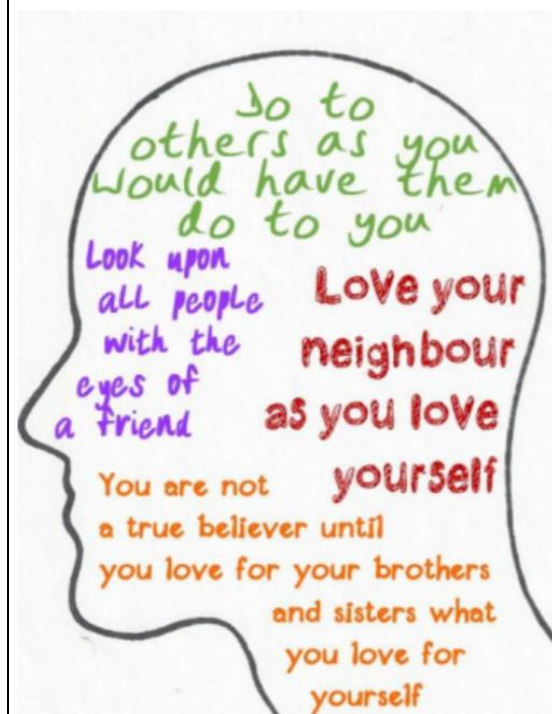 Do to
others as you
would have them
do to you
Look upon
all people
with the
eyes of
a friend
Love your
neighbour
as you love
yourself
You are not
a true believer until
you love for your brothers
and sisters what
you love for
yourself